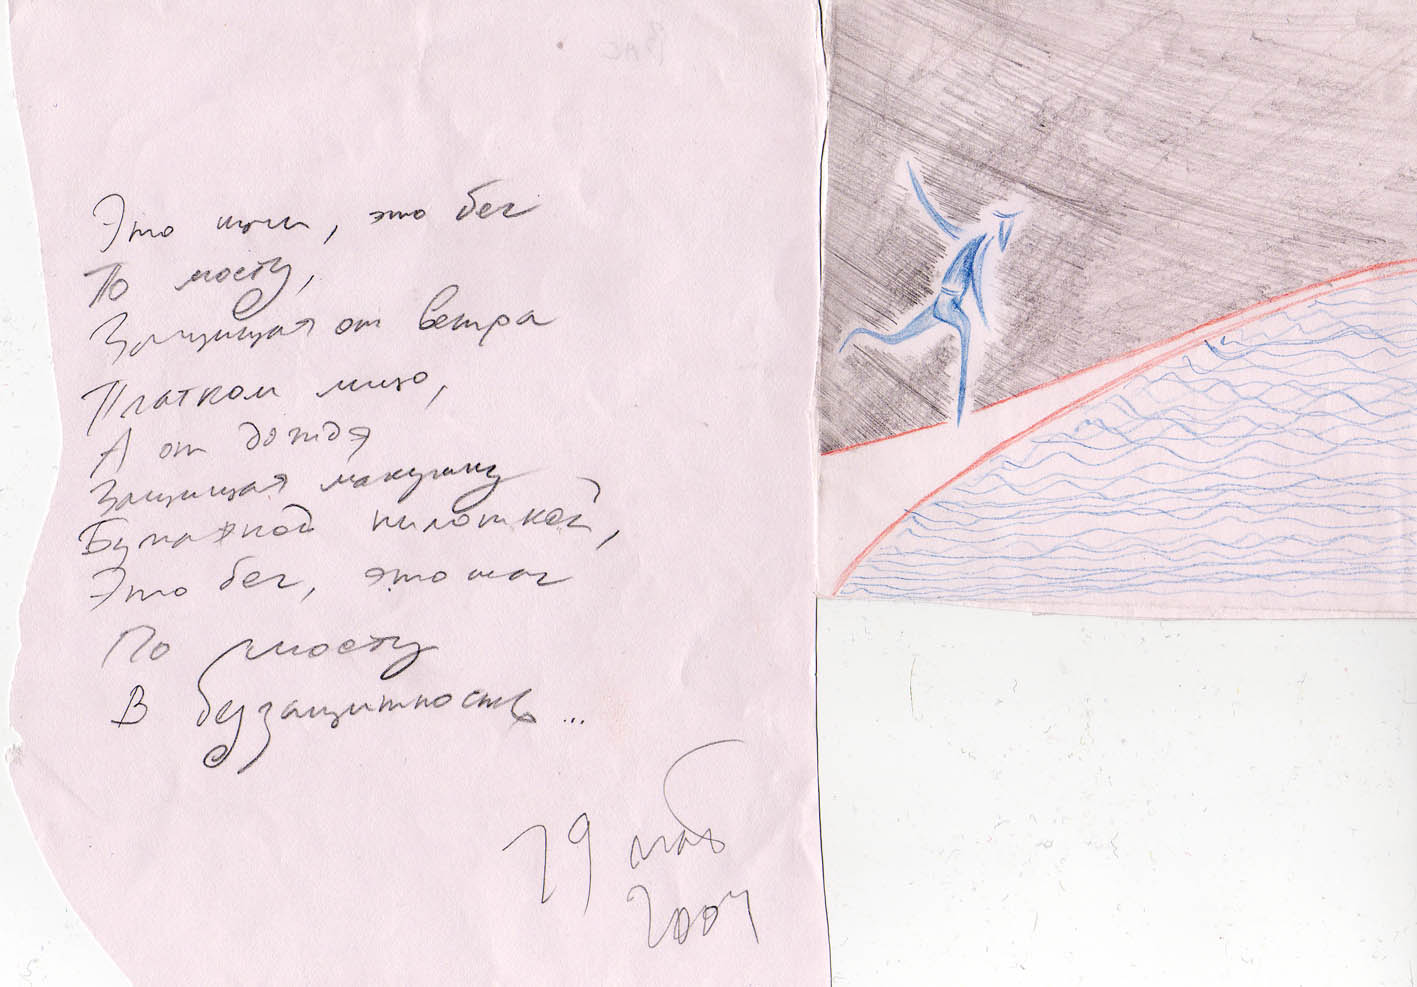 Это шаги, это бег
По мосту,
Защищая от ветра
Платком лицо,
А от дождя
Защищая макушку
Бумажной пилоткой,
Это бег, это шаг
По мосту
В беззащитность...
19 мая
2004